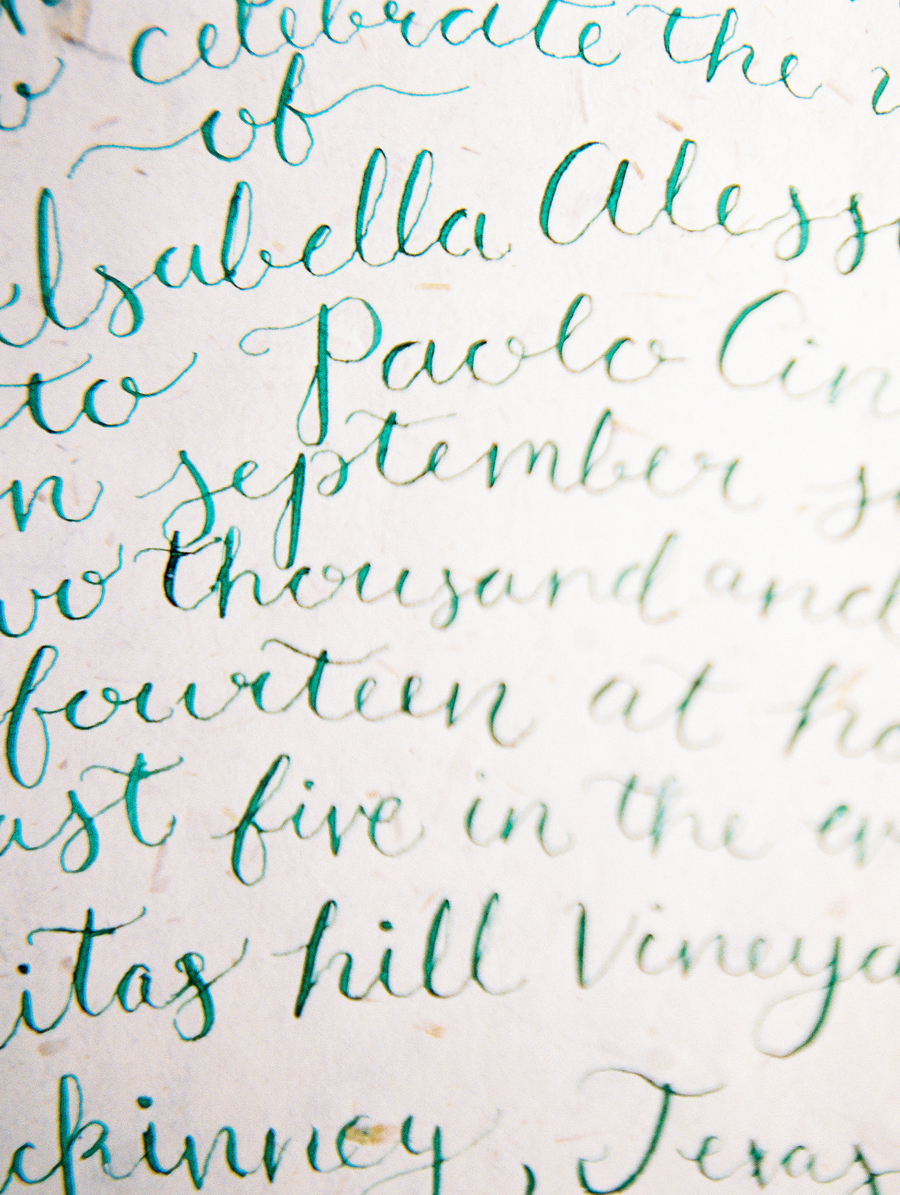 o celebrate the
of
Isabella Aless
to Paolo Cin
n september s
wo thousand and
fourteen at ha
ast five in the ev
itas hill Vineya
ckinney, Texas